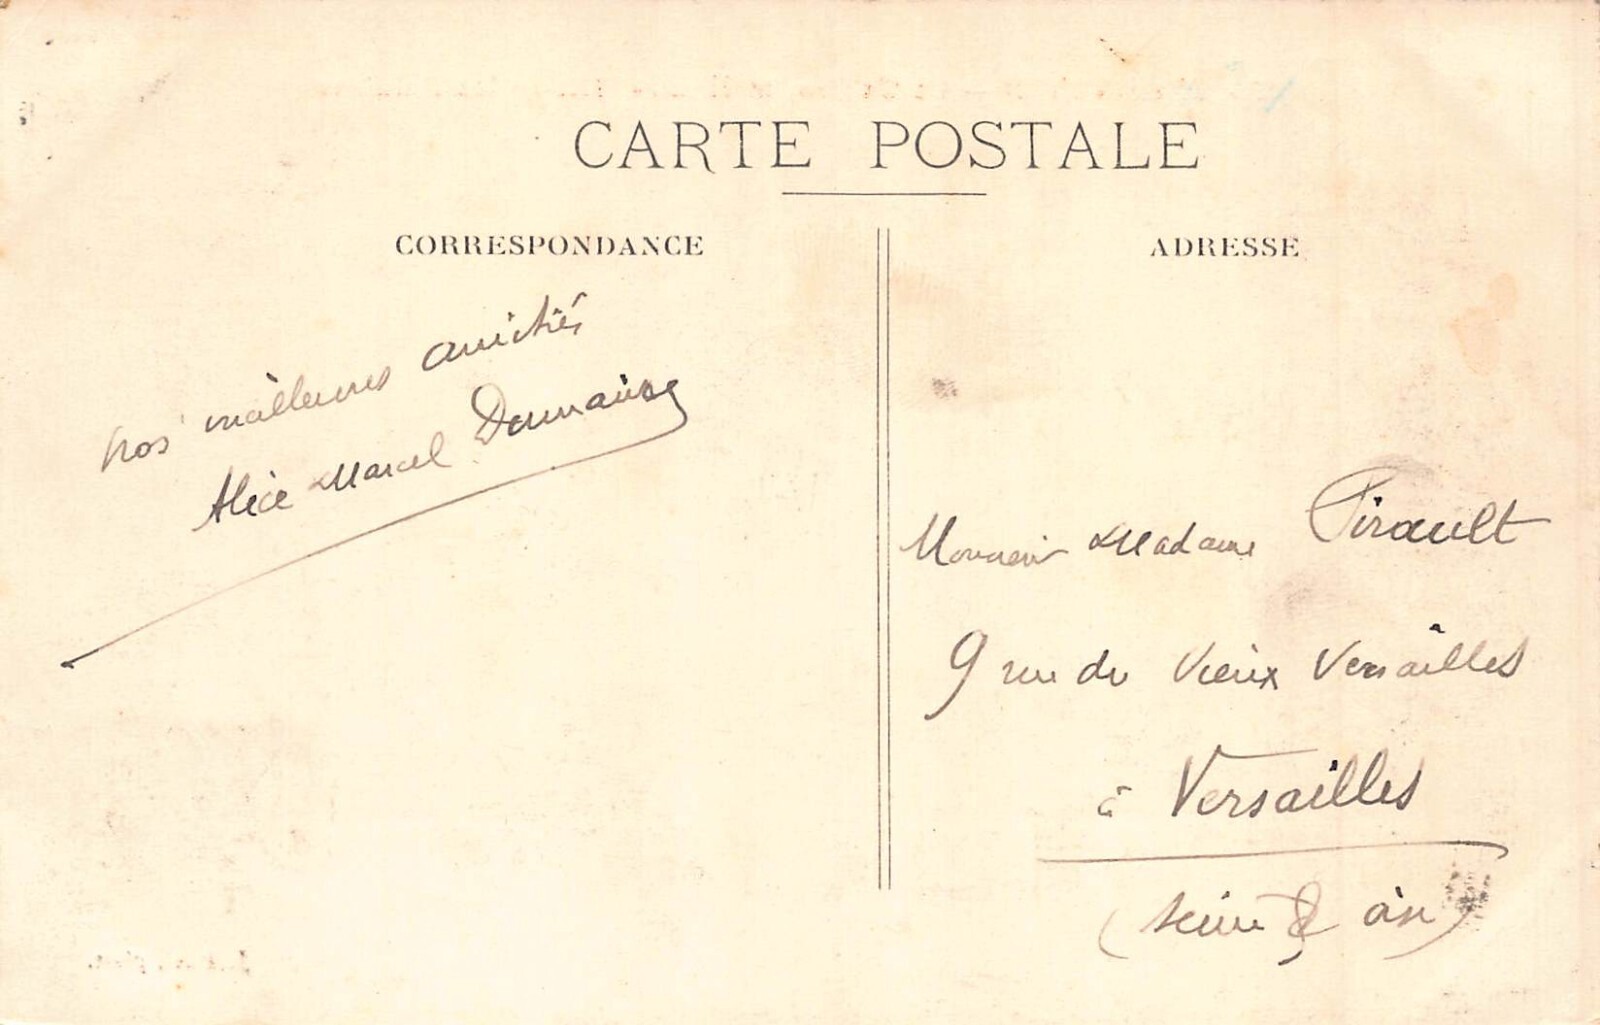 CARTE POSTALE
CORRESPONDANCE
ADRESSE
nos meilleures amitiés
Alice Marcel
Monsieur Madame Pirault
9 rue du Vieux Versailles
à Versailles
(Seine & Oise)